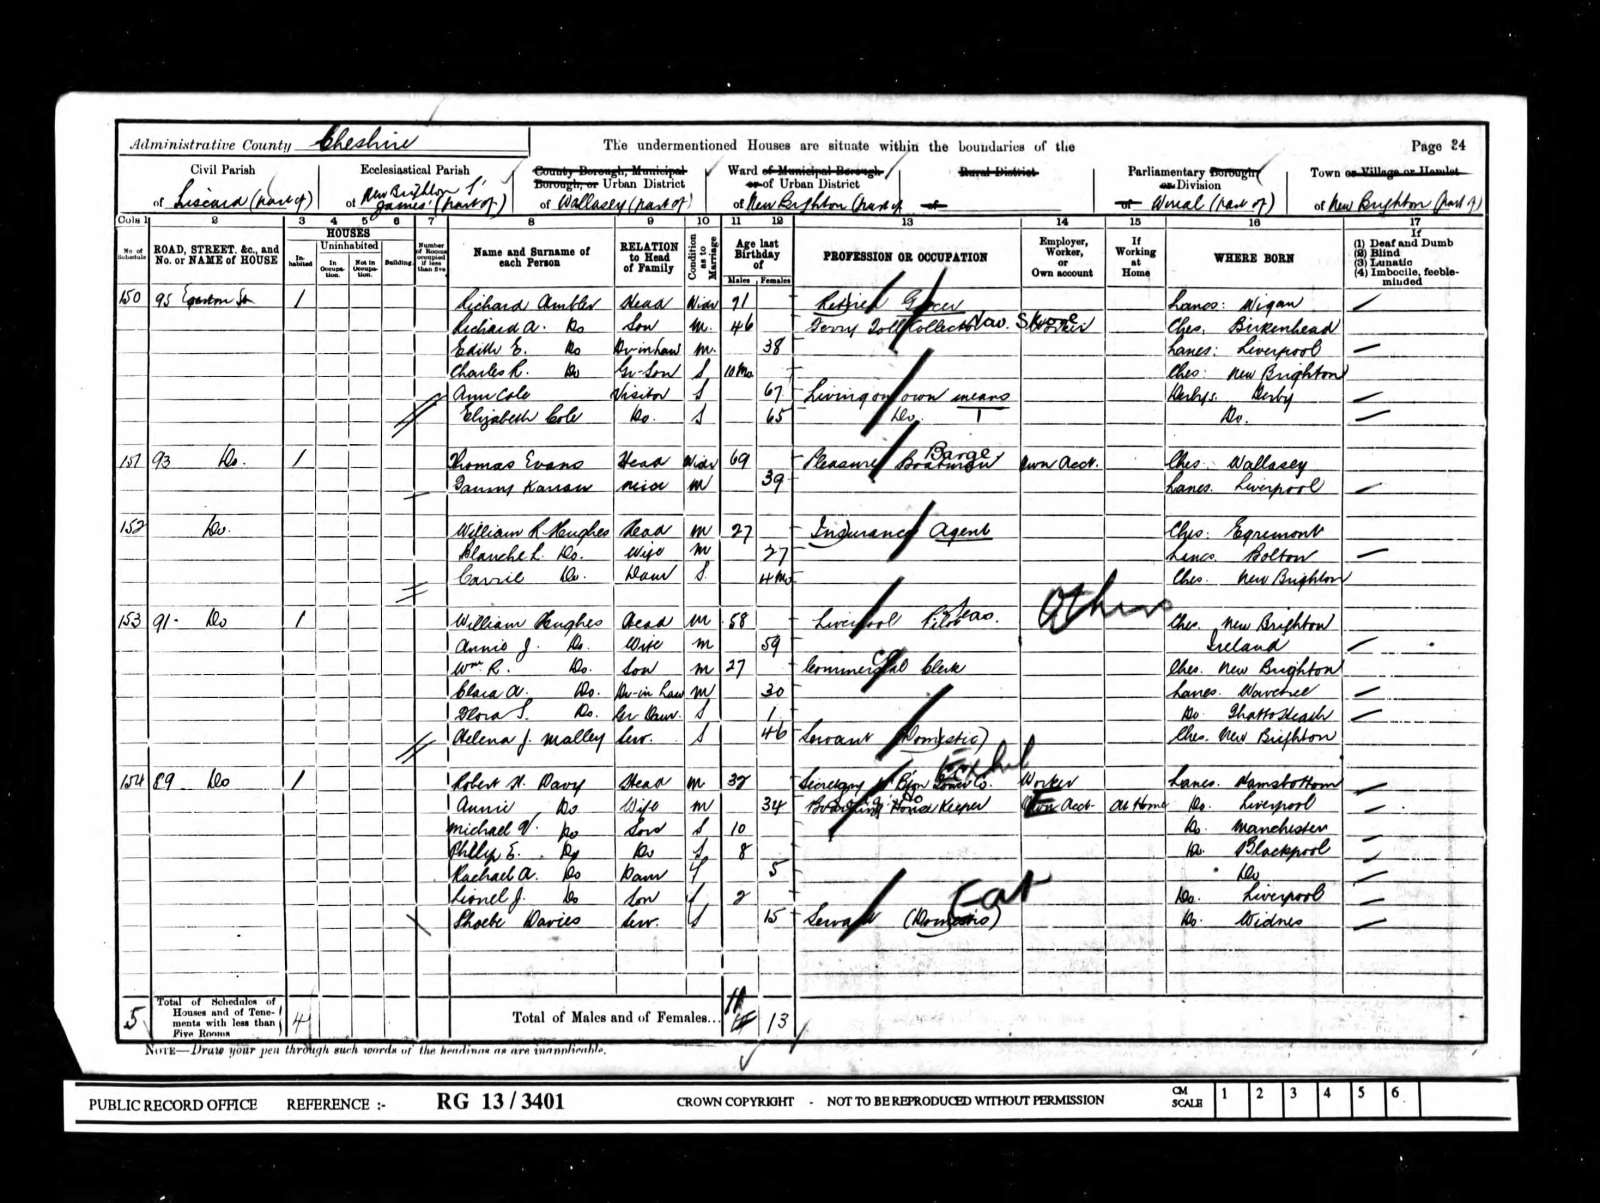 Administrative County Cheshire
The undermentioned Houses are situate within the boundaries of the
Page 24
Civil Parish
of Liscard (part of)
Ecclesiastical Parish
of New Brighton St James' (part of)
County Borough, Municipal Borough, or Urban District
of Wallasey (part of)
Ward of Municipal Borough or of Urban District
of New Brighton (part of
Rural District
of
Parliamentary Borough or Division
of Wirral (part of)
Town or Village or Hamlet
of New Brighton (part of)
Cols 1 2 3 4 5 6 7 8 9 10 11 12 13 14 15 16 17
No. of Schedule
ROAD, STREET, &c., and No. or NAME of HOUSE
HOUSES
Inhabited
Uninhabited
In Occupation.
Not in Occupation.
Building.
Number of Rooms occupied if less than five
Name and Surname of each Person
RELATION to Head of Family
Condition as to Marriage
Age last Birthday of
Males Females
PROFESSION OR OCCUPATION
Employer, Worker, or Own account
If Working at Home
WHERE BORN
If
(1) Deaf and Dumb
(2) Blind
(3) Lunatic
(4) Imbecile, feeble-minded
150 95 Egerton St 1 Richard Ambler Head Widr 71 Retired Grocer Lancs: Wigan
Richard A. Do Son M. 46 Ferry Toll Collector Nav. Worker Ches. Birkenhead
Edith E. Do Dr-in-Law M. 38 Lancs: Liverpool
Charles R. Do Gr-Son S 10 Mo Ches: New Brighton
Ann Cole Visitor S 67 Living on own means Derbys. Derby
Elizabeth Cole Do. S 65 Do. Do.
151 93 Do. 1 Thomas Evans Head Widr 69 Pleasure Boatman Barge Own Acct. Ches: Wallasey
Fanny Karran Niece M 39 Lancs. Liverpool
152 Do. William R Hughes Head M 27 Insurance Agent Ches: Egremont
Blanche L. Do. Wife M 27 Lancs. Bolton
Carrie Do. Daur S. 4 Mo Ches. New Brighton
153 91 Do 1 William Hughes Head M 58 Liverpool Pilot Seas. Others Ches. New Brighton
Annie J. Do. Wife M 59 Ireland
Wm R. Do. Son M 27 Commercial Clerk Ches. New Brighton
Clara A. Do. Dr-in Law M 30 Lancs. Wavertree
Flora S. Do. Gr Daur. S 1 Do Thatto Heath
Helena J. Malley Serv. S 46 Servant (Domestic) Ches. New Brighton
154 89 Do 1 Robert H. Davy Head M 32 Secretary N. B'ton Tower Co. Worker Lancs. Ramsbottom
Annie Do Wife M 34 Boarding House Keeper Own Acct At Home Do. Liverpool
Michael V. Do Son S 10 Do. Manchester
Phllip E. Do Do S 8 Do. Blackpool
Rachael A. Do Daur S 5 Do
Lionel J. Do Son S 2 Do. Liverpool
Phoebe Davies Serv. S 15 Servant (Domestic) Do. Widnes
5 Total of Schedules of Houses and of Tenements with less than Five Rooms 4
Total of Males and of Females... 11 13
NOTE—Draw your pen through such words of the headings as are inapplicable.
PUBLIC RECORD OFFICE REFERENCE :- RG 13/3401 CROWN COPYRIGHT - NOT TO BE REPRODUCED WITHOUT PERMISSION CM SCALE 1 2 3 4 5 6